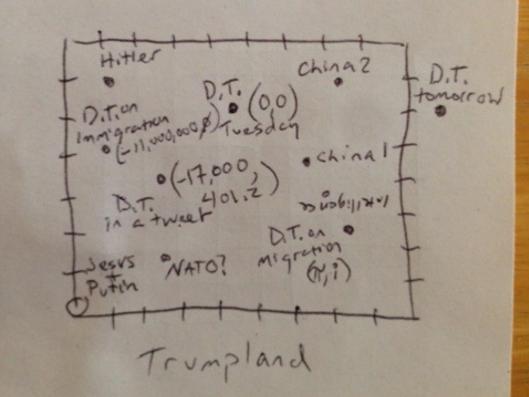 Hitler
China 2
D.T.
tomorrow
D.T.
(0,0)
Tuesday
D.T. on
immigration
(-11,000,000,0)
China 1
(-17,000,
401.2)
D.T.
in a tweet
Intelligence
D.T. on
migration
(π, i)
Jesus
Putin
NATO?
Trumpland